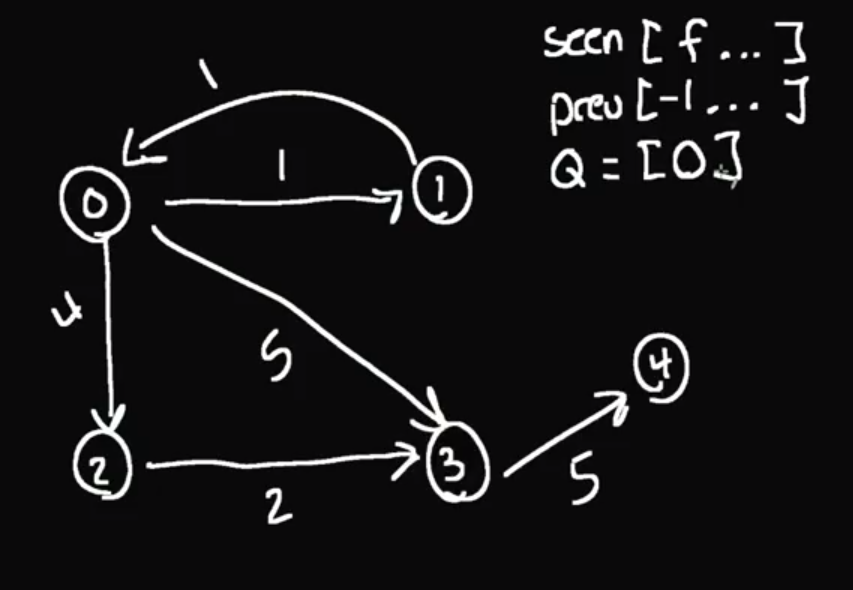 seen [ f ... ]
prev [-1 ... ]
Q = [0]
1
1
0
1
4
5
4
2
3
2
5